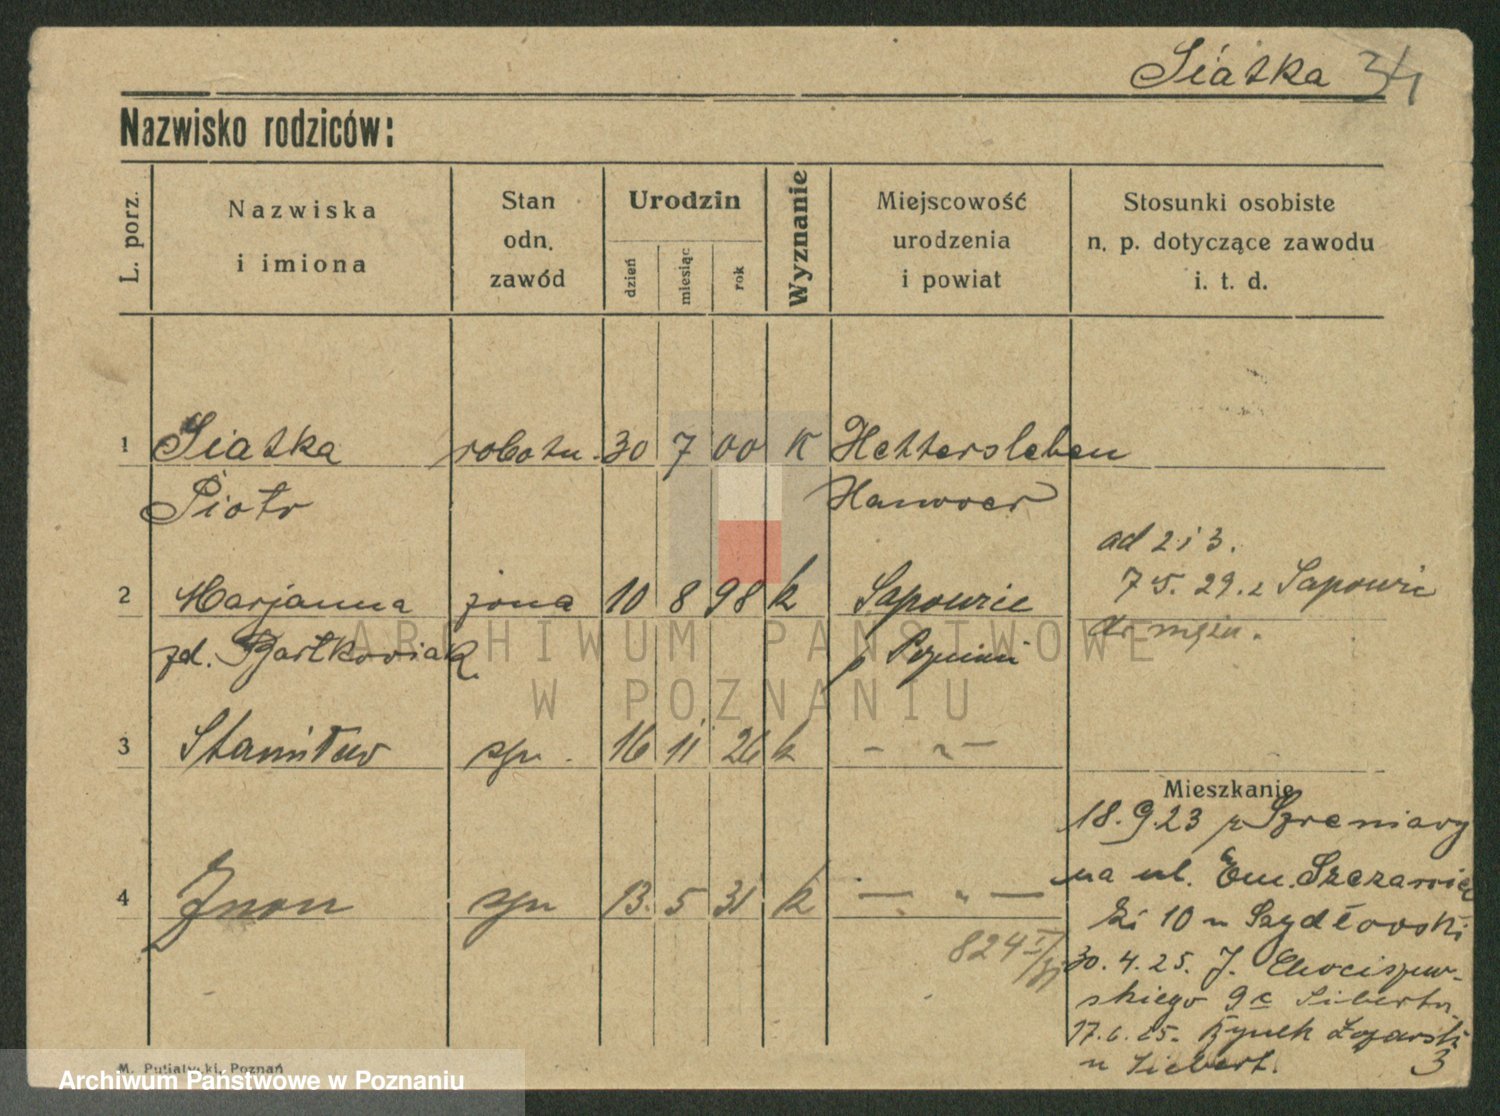 Siatka 34
Nazwisko rodziców:
L. porz.
Nazwiska
i imiona
Stan
odn.
zawód
Urodzin
dzień
miesiąc
rok
Wyznanie
Miejscowość
urodzenia
i powiat
Stosunki osobiste
n. p. dotyczące zawodu
i. t. d.
1 Siatka robotn. 30 7 00 K Hettersleben
Piotr Hanower
ad 2 i 3.
7 5. 29. z Sapowic
2 Marjanna żona 10 8 98 k Sapowice
do męża.
zd. Bartkowiak p Poznań
3 Stanisław syn. 16 11 26 k – " –
Mieszkanie
18.9.23 z Szreniawy
na ul. Em. Szczaniec
ki 10 u Szydłowski
4 syn 13. 5 31 k — " —
824 I/31
30.4.25. J. Chociszew-
skiego 9c Siberta
17.6.25. Rynek Łazarski
u Siebert. 3
M. Putiatycki, Poznań
ARCHIWUM PAŃSTWOWE
W POZNANIU
Archiwum Państwowe w Poznaniu